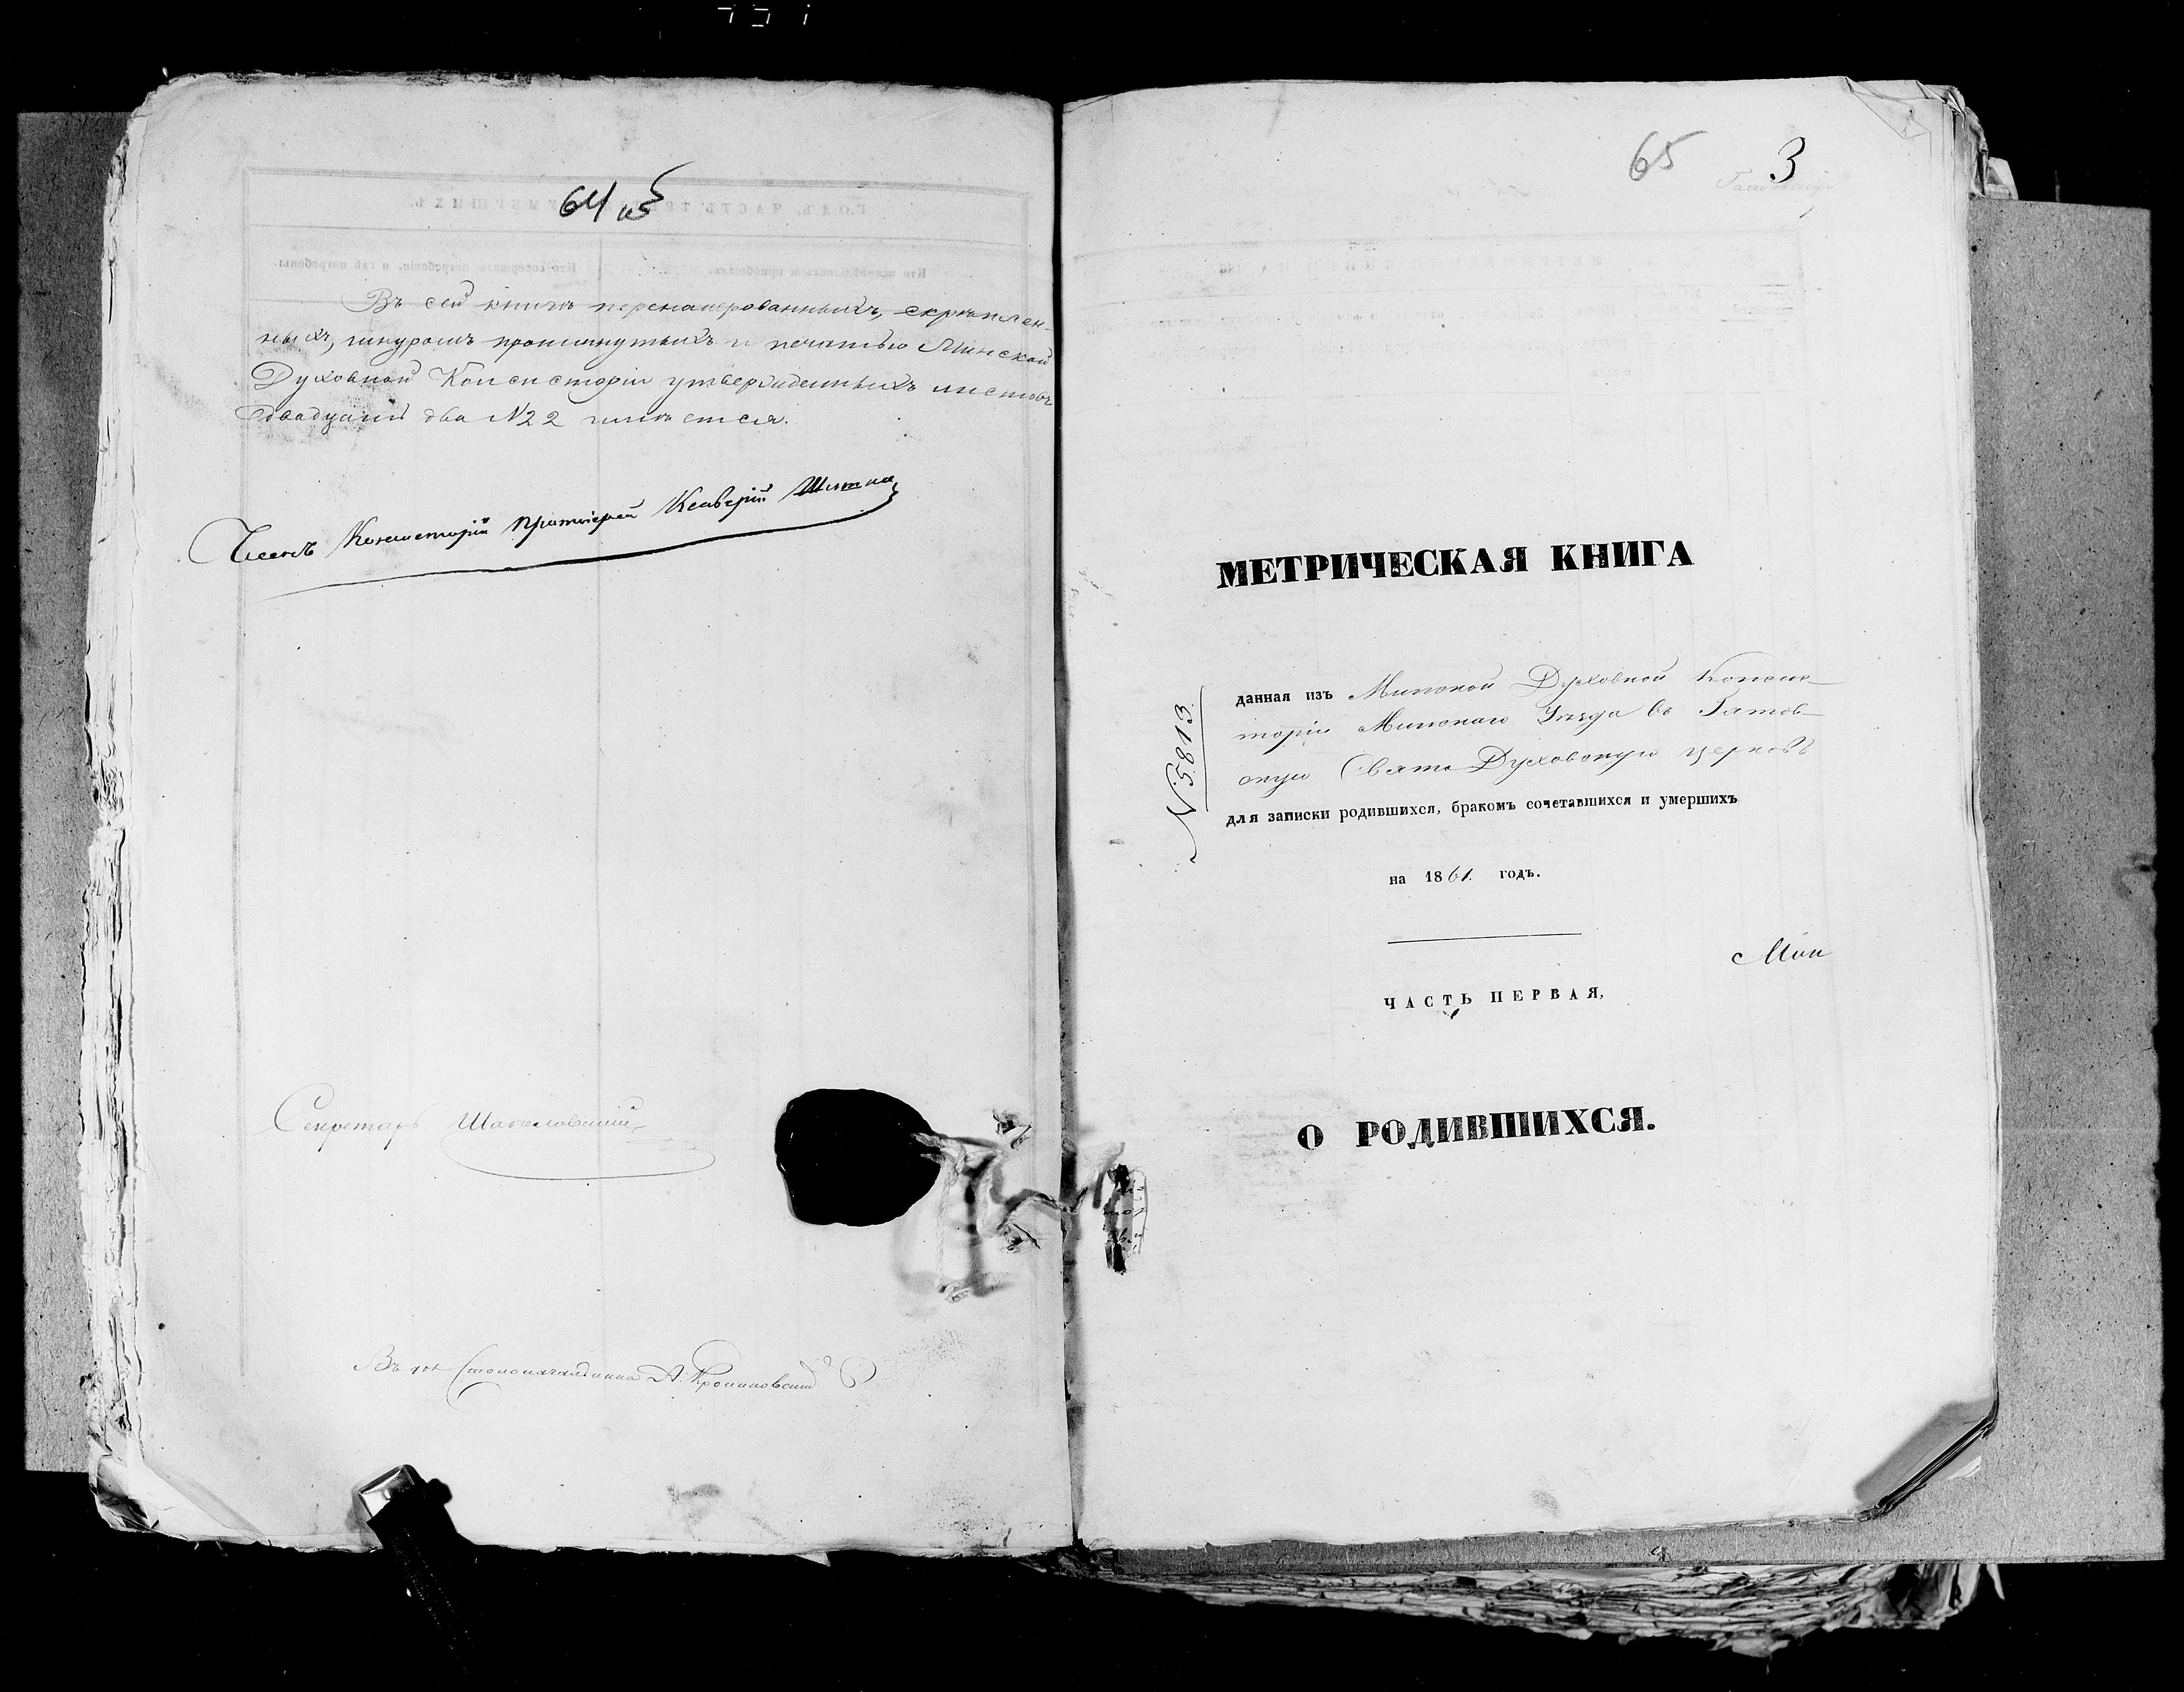 64 об
Въ сей книгѣ перенумерованныхъ, скрѣплен-
ныхъ, шнуромъ прошнутыхъ и печатью Минской
Духовной Консисторіи утвержденныхъ листовъ
двадцать два №22 имѣется.
Членъ Консисторіи Протоіерей
Секретарь
Въ дол. Столоначальника А.
65 3
МЕТРИЧЕСКАЯ КНИГА
№ 5813
данная изъ Минской Духовной Консис-
торіи Минскаго Уѣзда въ Гатов-
скую Свято Духовскую церковь
для записки родившихся, бракомъ сочетавшихся и умершихъ
на 1861. годъ.
Мин
ЧАСТЬ ПЕРВАЯ,
О РОДИВШИХСЯ.